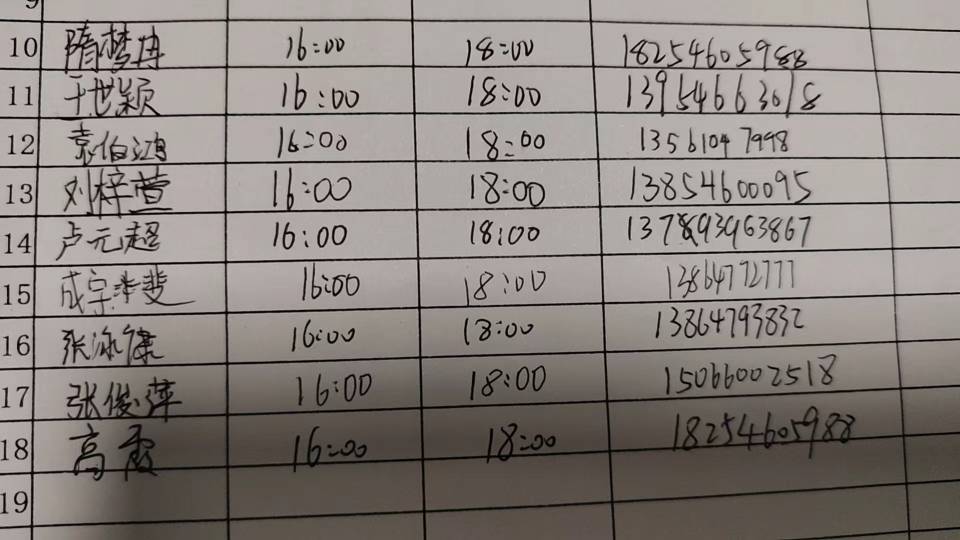 10 隋梦冉 16:00 18:00 18254605988
11 王世颖 16:00 18:00 13954663618
12 袁伯鸿 16:00 18:00 13561047998
13 刘梓萱 16:00 18:00 13854600095
14 卢元超 16:00 18:00
15 成宗 斐 16:00 18:00 13864772777
16 张泳康 16:00 18:00 13864793832
17 张俊萍 16:00 18:00 15066002518
18 高霞 16:00 18:00 18254605988
19